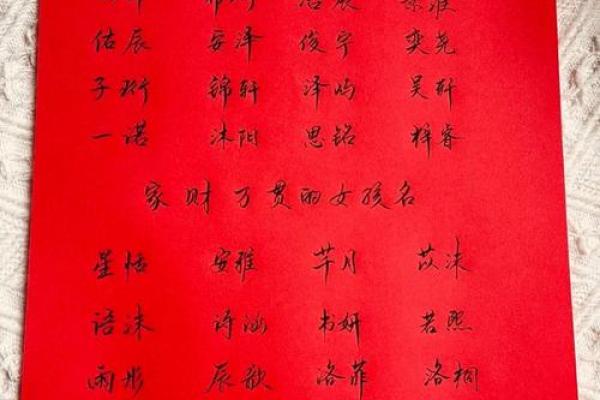 佑辰 安泽 俊宇 奕尧
子珩 锦轩 泽屿 昊轩
一诺 沐阳 思铭 梓睿
家财万贯的女孩名
星恬 安雅 芊月 苡沫
语沫 诗涵 书妍 若熙
雨彤 辰歆 洛菲 洛桐